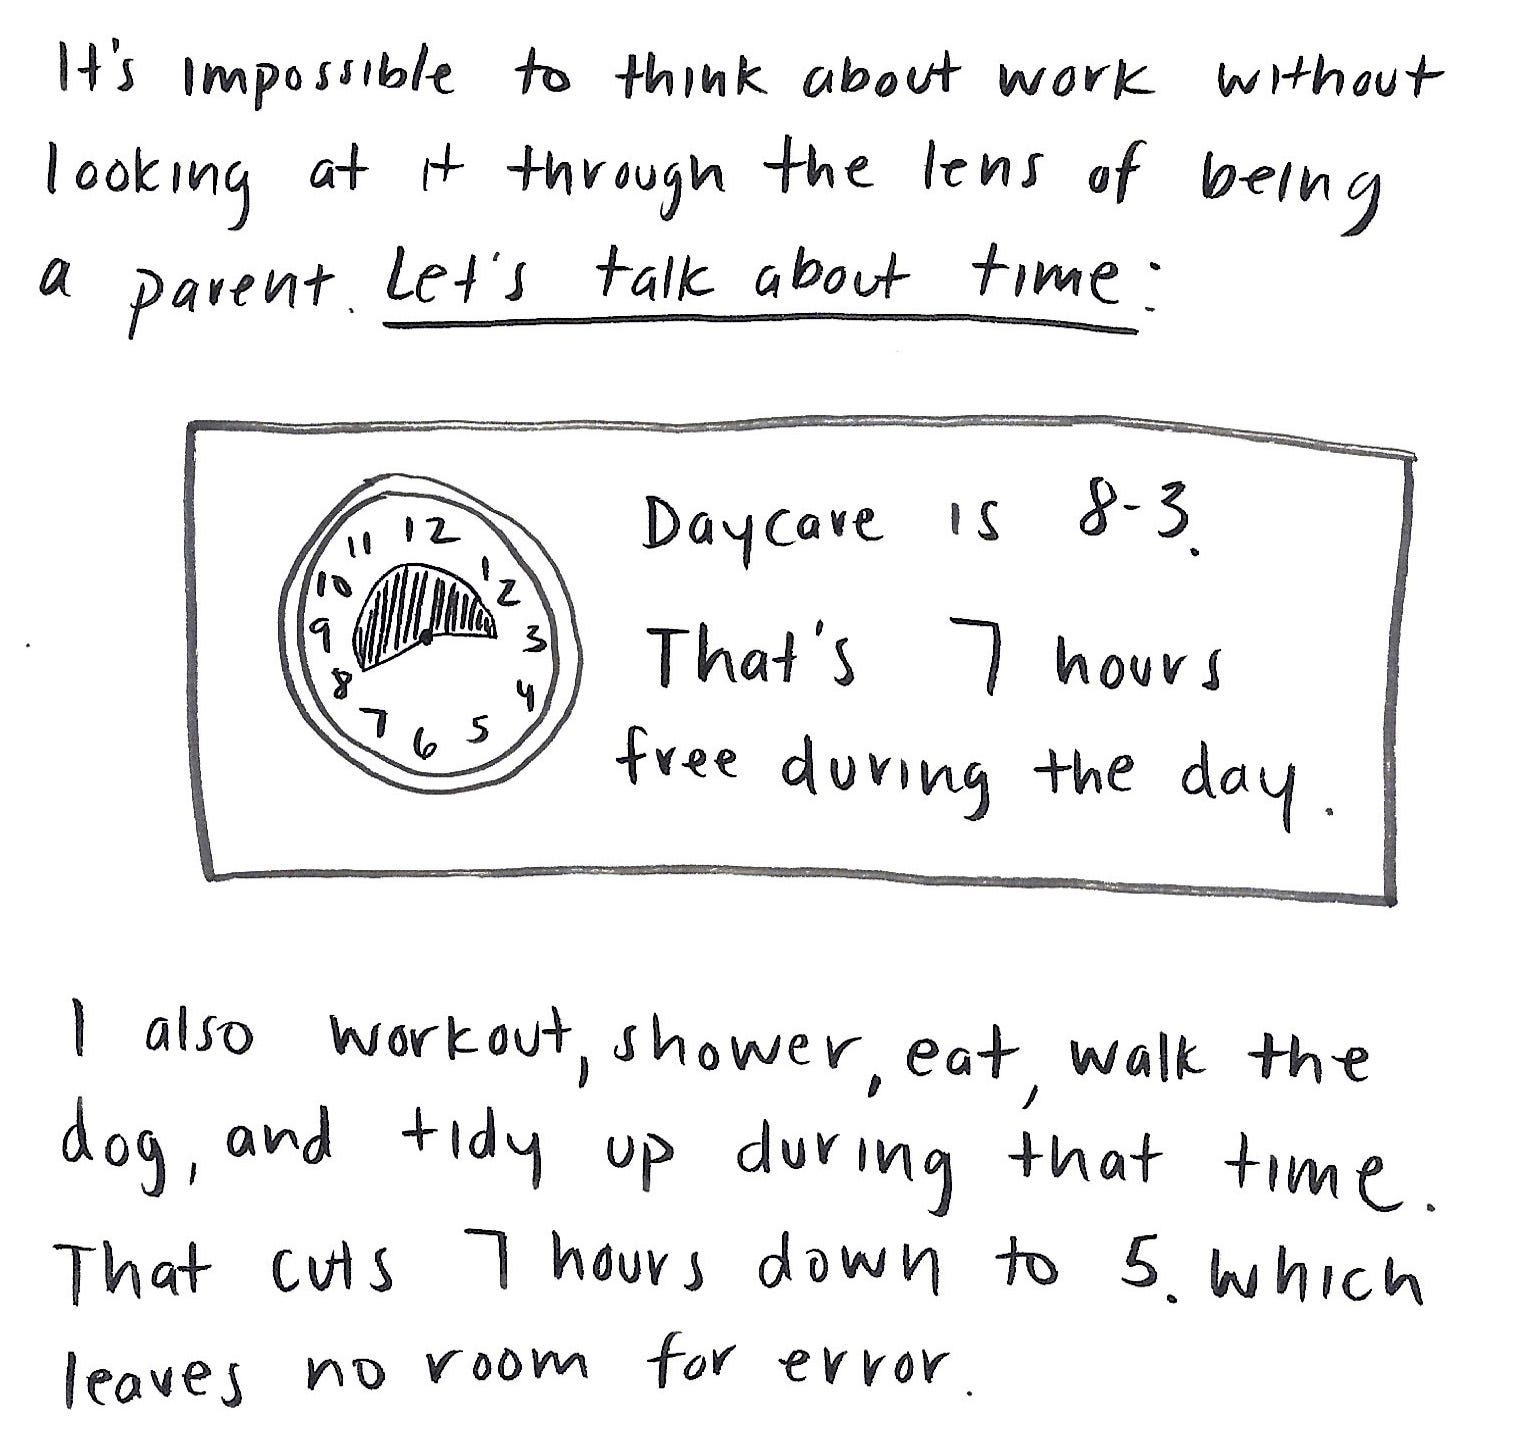 It's impossible to think about work without
looking at it through the lens of being
a parent. Let's talk about time:
12
11
1
10
2
9
3
8
4
7
5
6
Daycare is 8-3.
That's 7 hours
free during the day.
I also workout, shower, eat, walk the
dog, and tidy up during that time.
That cuts 7 hours down to 5. Which
leaves no room for error.